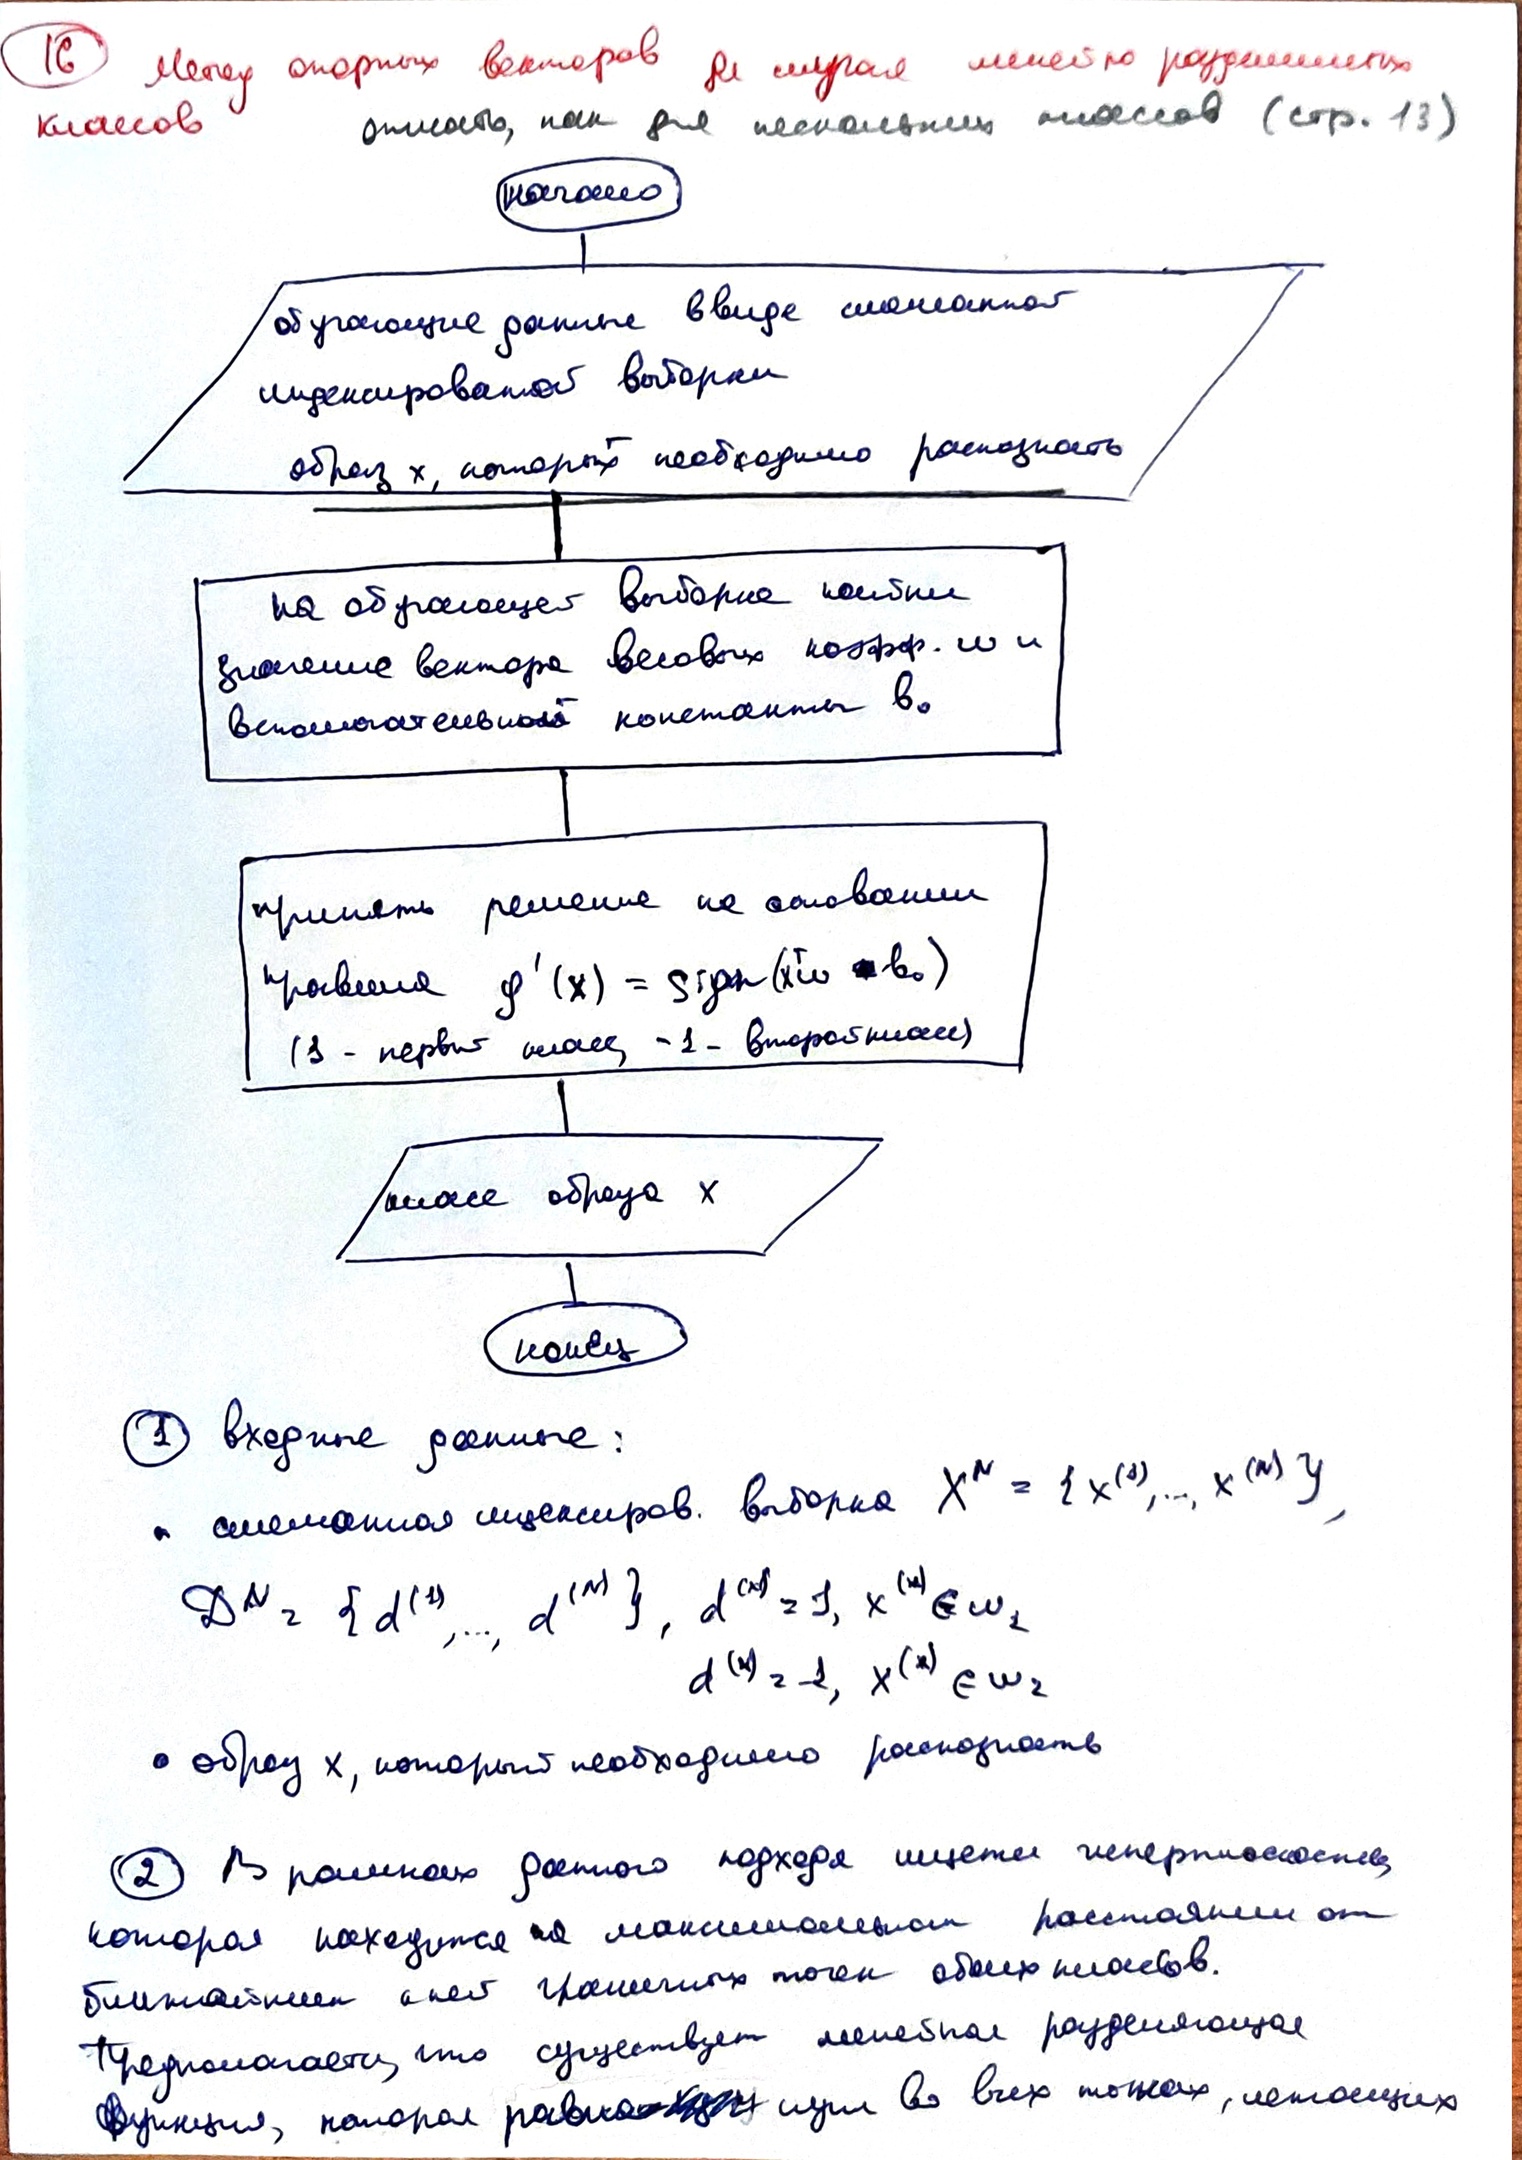 16 Метод опорных векторов для случая линейно разделимых
классов описать, как для нескольких классов (стр. 13)
начало
обучающие данные в виде смешанной
индексированной выборки
образ x, который необходимо распознать
на обучающей выборке найти
значение вектора весовых коэфф. w и
вспомогательной константы b₀
принять решение на основании
правила g'(x) = sign(xᵀw - b₀)
(1 - первый класс, -1 - второй класс)
класс образа x
конец
1 входные данные:
• смешанная индексиров. выборка Xᴺ = {x⁽¹⁾,..., x⁽ᴺ⁾},
Dᴺ = {d⁽¹⁾,..., d⁽ᴺ⁾}, d⁽ᵏ⁾ = 1, x⁽ᵏ⁾ ∈ w₁
d⁽ᵏ⁾ = -1, x⁽ᵏ⁾ ∈ w₂
• образ x, который необходимо распознать
2 В рамках данного подхода ищется гиперплоскость,
которая находится на максимальном расстоянии от
ближайших к ней граничных точек обоих классов.
Предполагается, что существует линейная разделяющая
функция, которая равна нулю во всех точках, лежащих